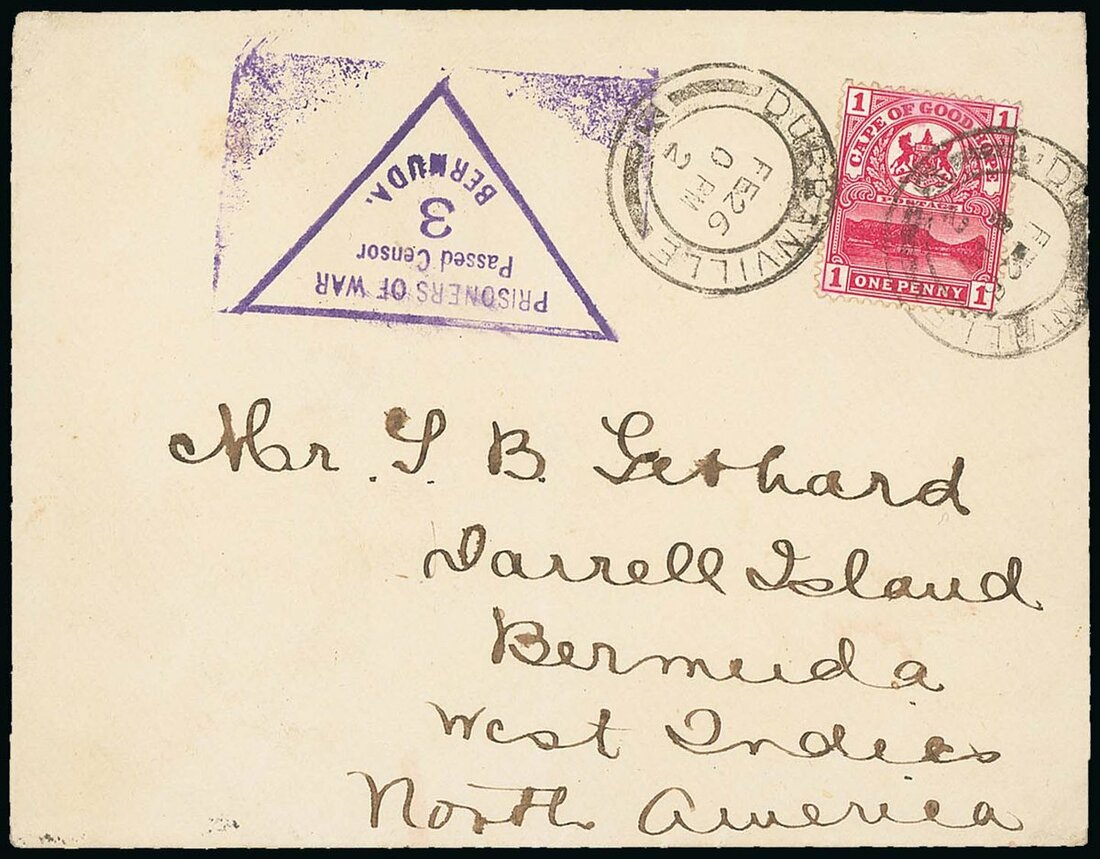 PRISONERS OF WAR
Passed Censor
3
BERMUDA.
DURBANVILLE
FE 26
0 PM
2
1 1
CAPE OF GOOD HOPE
POSTAGE
1 ONE PENNY 1
Mr. S B. Gethard
Darrell Island
Bermuda
West Indies
North America